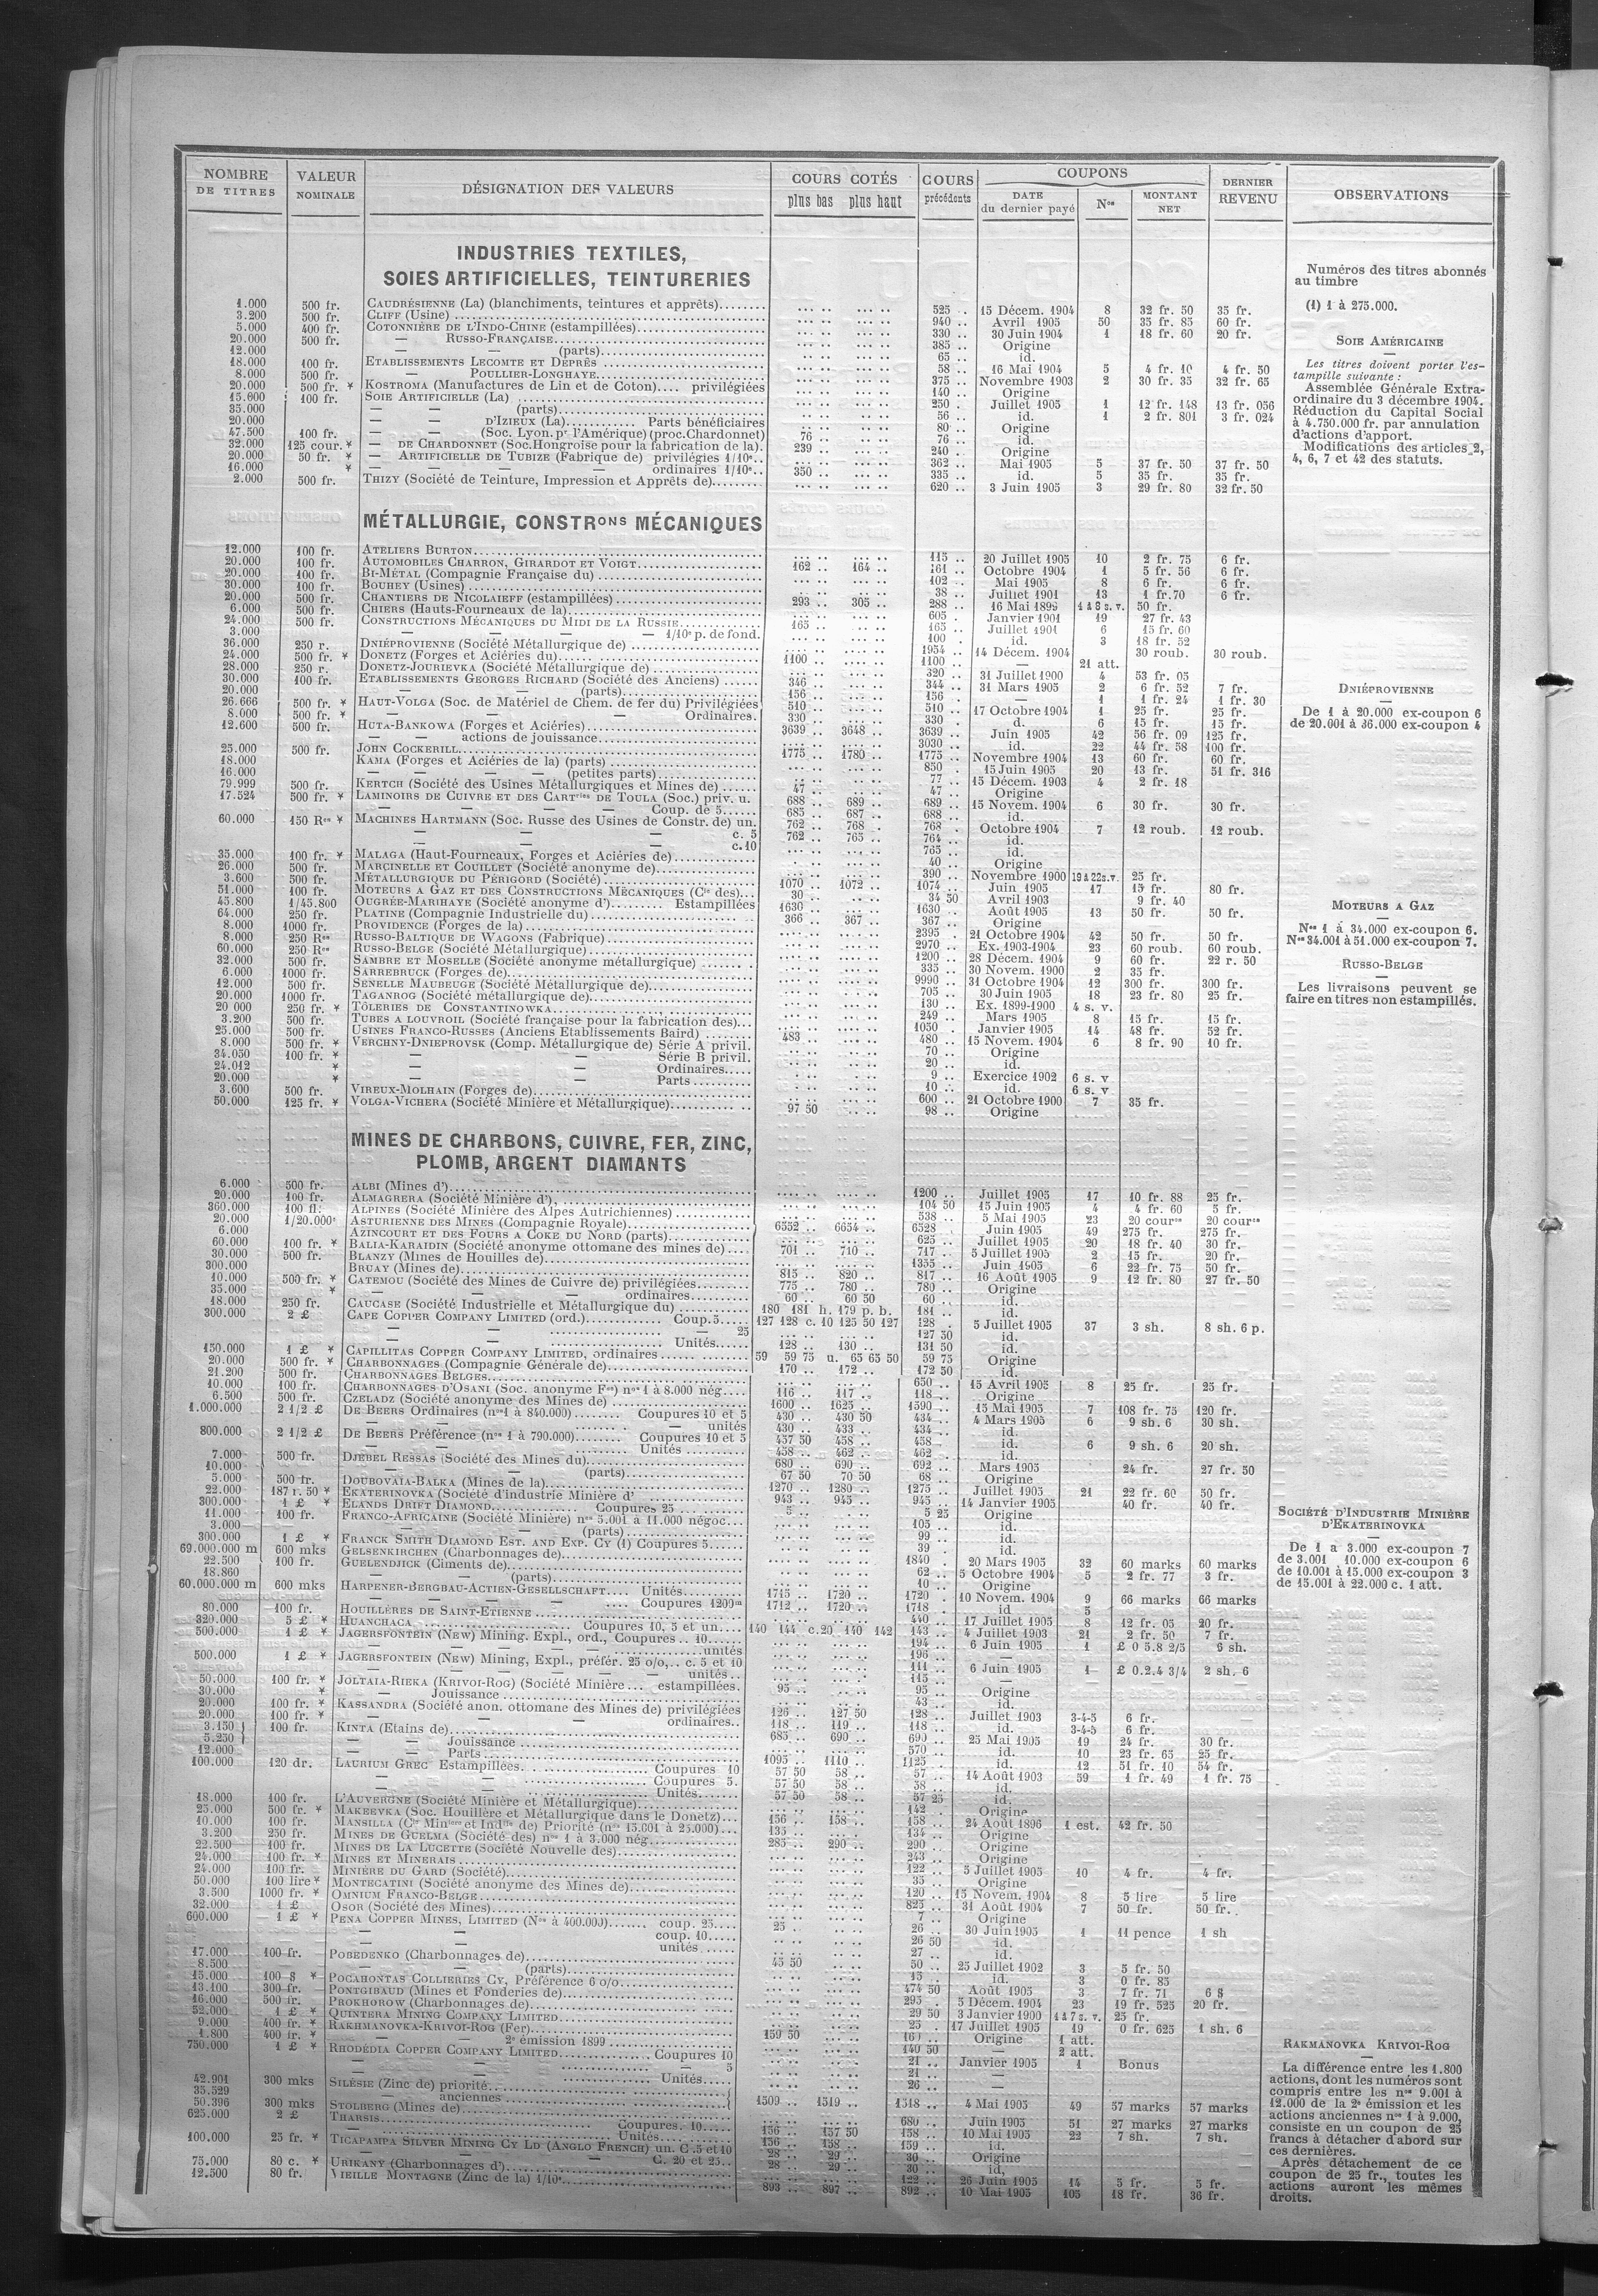 NOMBRE DE TITRES | VALEUR NOMINALE | DÉSIGNATION DES VALEURS | COURS COTÉS plus bas plus haut | COURS précédents | COUPONS DATE du dernier payé | Nos | MONTANT NET | DERNIER REVENU | OBSERVATIONS
INDUSTRIES TEXTILES,
SOIES ARTIFICIELLES, TEINTURERIES
1.000 500 fr. CAUDRÉSIENNE (La) (blanchiments, teintures et apprêts) 525 15 Décem. 1904 8 32 fr. 50 35 fr.
3.200 500 fr. CLIFF (Usine) 940 Avril 1905 50 35 fr. 85 60 fr.
5.000 400 fr. COTONNIÈRE DE L'INDO-CHINE (estampillées) 330 30 Juin 1904 1 18 fr. 60 20 fr.
20.000 500 fr. — RUSSO-FRANÇAISE 385 Origine
12.000 — — (parts) 65 id.
18.000 100 fr. ETABLISSEMENTS LECOMTE ET DEPRÊS 58 16 Mai 1904 5 4 fr. 10 4 fr. 50
8.000 500 fr. — POULLIER-LONGHAYE 375 Novembre 1903 2 30 fr. 35 32 fr. 65
20.000 500 fr. * KOSTROMA (Manufactures de Lin et de Coton) privilégiées 140 Origine
15.600 100 fr. SOIE ARTIFICIELLE (La) 250 Juillet 1905 1 12 fr. 148 13 fr. 056
35.000 — — (parts) 56 id. 1 2 fr. 801 3 fr. 024
20.000 — — D'IZIEUX (La) Parts bénéficiaires 80 Origine
47.500 100 fr. — — (Soc. Lyon. pr l'Amérique) (proc. Chardonnet) 76 76 id.
32.000 125 cour. * — DE CHARDONNET (Soc. Hongroise pour la fabrication de la) 239 240 Origine
20.000 50 fr. * — ARTIFICIELLE DE TUBIZE (Fabrique de) privilégies 1/10e 362 Mai 1905 5 37 fr. 50 37 fr. 50
16.000 * — — — — ordinaires 1/10e 350 335 id. 5 35 fr. 35 fr.
2.000 500 fr. THIZY (Société de Teinture, Impression et Apprêts de) 620 3 Juin 1905 3 29 fr. 80 32 fr. 50
Numéros des titres abonnés
au timbre
(1) 1 à 275.000.
SOIE AMÉRICAINE
Les titres doivent porter l'es-
tampille suivante :
Assemblée Générale Extra-
ordinaire du 3 décembre 1904.
Réduction du Capital Social
à 4.750.000 fr. par annulation
d'actions d'apport.
Modifications des articles 2,
4, 6, 7 et 42 des statuts.
MÉTALLURGIE, CONSTRons MÉCANIQUES
12.000 100 fr. ATELIERS BURTON 115 20 Juillet 1905 10 2 fr. 75 6 fr.
20.000 100 fr. AUTOMOBILES CHARRON, GIRARDOT ET VOIGT 162 164 161 Octobre 1904 1 5 fr. 56 6 fr.
20.000 100 fr. BI-MÉTAL (Compagnie Française du) 102 Mai 1905 8 6 fr. 6 fr.
30.000 100 fr. BOUHEY (Usines) 38 Juillet 1901 13 1 fr. 70 6 fr.
20.000 500 fr. CHANTIERS DE NICOLAIEFF (estampillées) 293 305 288 16 Mai 1899 1 à 8 s. v. 50 fr.
6.000 500 fr. CHIERS (Hauts-Fourneaux de la) 605 Janvier 1901 19 27 fr. 43
24.000 500 fr. CONSTRUCTIONS MÉCANIQUES DU MIDI DE LA RUSSIE 165 165 Juillet 1901 6 15 fr. 60
3.000 — — — — 1/10e p. de fond. 100 id. 3 18 fr. 52
36.000 250 r. DNIÉPROVIENNE (Société Métallurgique de) 1954 14 Décem. 1904 30 roub. 30 roub.
24.000 500 fr. * DONETZ (Forges et Aciéries du) 1100 1100 — 21 att.
28.000 250 r. DONETZ-JOURIEVKA (Société Métallurgique de) 320 31 Juillet 1900 4 53 fr. 05
30.000 100 fr. ETABLISSEMENTS GEORGES RICHARD (Société des Anciens) 346 344 31 Mars 1905 2 6 fr. 52 7 fr.
20.000 — — (parts) 156 156 1 1 fr. 24 1 fr. 30
26.666 500 fr. * HAUT-VOLGA (Soc. de Matériel de Chem. de fer du) Privilégiées 510 510 17 Octobre 1904 1 25 fr. 25 fr.
8.000 500 fr. * — — — Ordinaires. 330 330 d. 6 15 fr. 15 fr.
12.600 500 fr. HUTA-BANKOWA (Forges et Aciéries) 3639 3648 3639 Juin 1905 42 56 fr. 09 125 fr.
— actions de jouissance 3030 id. 22 44 fr. 58 100 fr.
25.000 500 fr. JOHN COCKERILL 1775 1780 1775 Novembre 1904 13 60 fr. 60 fr.
18.000 KAMA (Forges et Aciéries de la) (parts) 850 15 Juin 1905 20 13 fr. 51 fr. 316
16.000 — — — — (petites parts) 77 15 Décem. 1903 4 2 fr. 18
79.999 500 fr. KERTCH (Société des Usines Métallurgiques et Mines de) 47 47 Origine
17.524 500 fr. * LAMINOIRS DE CUIVRE ET DES CARTries DE TOULA (Soc.) priv. u. 688 689 689 15 Novem. 1904 6 30 fr. 30 fr.
— — — Coup. de 5 685 687 688 id.
60.000 150 Res * MACHINES HARTMANN (Soc. Russe des Usines de Constr. de) un. 762 768 768 Octobre 1904 7 12 roub. 12 roub.
— — — c. 5 762 765 764 id.
— — — c. 10 765 id.
35.000 100 fr. * MALAGA (Haut-Fourneaux, Forges et Aciéries de) 40 Origine
26.000 500 fr. MARCINELLE ET COUILLET (Société anonyme de) 390 Novembre 1900 19 à 22 s. v. 25 fr.
3.600 500 fr. MÉTALLURGIQUE DU PÉRIGORD (Société) 1070 1072 1074 Juin 1905 17 15 fr. 80 fr.
51.000 100 fr. MOTEURS A GAZ ET DES CONSTRUCTIONS MÉCANIQUES (Cie des) 30 34 50 Avril 1903 9 fr. 40
45.800 1/45.800 OUGRÉE-MARIHAYE (Société anonyme d') Estampillées 1630 1630 Août 1905 13 50 fr. 50 fr.
64.000 250 fr. PLATINE (Compagnie Industrielle du) 366 367 367 Origine
8.000 1000 fr. PROVIDENCE (Forges de la) 2395 21 Octobre 1904 42 50 fr. 50 fr.
8.000 250 Res RUSSO-BALTIQUE DE WAGONS (Fabrique) 2970 Ex. 1903-1904 23 60 roub. 60 roub.
60.000 250 Res RUSSO-BELGE (Société Métallurgique) 1200 28 Décem. 1904 9 60 fr. 22 r. 50
32.000 500 fr. SAMBRE ET MOSELLE (Société anonyme métallurgique) 335 30 Novem. 1900 2 35 fr.
6.000 1000 fr. SARREBRUCK (Forges de) 9990 31 Octobre 1904 12 300 fr. 300 fr.
12.000 500 fr. SENELLE MAUBEUGE (Société Métallurgique de) 705 30 Juin 1905 18 23 fr. 80 25 fr.
20.000 1000 fr. TAGANROG (Société métallurgique de) 130 Ex. 1899-1900 4 s. v.
20 000 250 fr. * TÔLERIES DE CONSTANTINOWKA 249 Mars 1905 8 15 fr. 15 fr.
3.200 500 fr. TUBES A LOUVROIL (Société française pour la fabrication des) 1050 Janvier 1905 14 48 fr. 52 fr.
25.000 500 fr. USINES FRANCO-RUSSES (Anciens Etablissements Baird) 483 480 15 Novem. 1904 6 8 fr. 90 10 fr.
8.000 500 fr. * VERCHNY-DNIEPROVSK (Comp. Métallurgique de) Série A privil. 70 Origine
34.050 100 fr. * — — Série B privil. 20 id.
24.012 * — — Ordinaires 9 Exercice 1902 6 s. v
20.000 * — — Parts 10 id. 6 s. v
3.600 500 fr. VIREUX-MOLHAIN (Forges de) 600 21 Octobre 1900 7 35 fr.
50.000 125 fr. * VOLGA-VICHERA (Société Minière et Métallurgique) 97 50 98 Origine
DNIÉPROVIENNE
De 1 à 20.000 ex-coupon 6
de 20.001 à 36.000 ex-coupon 4
MOTEURS A GAZ
Nos 1 à 34.000 ex-coupon 6.
Nos 34.001 à 51.000 ex-coupon 7.
RUSSO-BELGE
Les livraisons peuvent se
faire en titres non estampillés.
MINES DE CHARBONS, CUIVRE, FER, ZINC,
PLOMB, ARGENT DIAMANTS
6.000 500 fr. ALBI (Mines d') 1200 Juillet 1905 17 10 fr. 88 25 fr.
20.000 100 fr. ALMAGRERA (Société Minière d') 104 50 15 Juin 1905 4 4 fr. 60 5 fr.
360.000 100 fl. ALPINES (Société Minière des Alpes Autrichiennes) 538 5 Mai 1905 23 20 coures 20 coures
20.000 1/20.000e ASTURIENNE DES MINES (Compagnie Royale) 6552 6654 6528 Juin 1905 49 275 fr. 275 fr.
6.000 AZINCOURT ET DES FOURS A COKE DU NORD (parts) 625 Juillet 1905 20 18 fr. 40 30 fr.
60.000 100 fr. * BALIA-KARAIDIN (Société anonyme ottomane des mines de) 701 710 717 5 Juillet 1905 2 15 fr. 20 fr.
30.000 500 fr. BLANZY (Mines de Houilles de) 1355 Juin 1905 6 22 fr. 75 50 fr.
300.000 BRUAY (Mines de) 815 820 817 16 Août 1905 9 12 fr. 80 27 fr. 50
10.000 500 fr. * CATEMOU (Société des Mines de Cuivre de) privilégiées 775 780 780 Origine
35.000 * — — ordinaires 60 60 50 60 id.
18.000 250 fr. CAUCASE (Société Industrielle et Métallurgique du) 180 181 h. 179 p. b. 181 id.
300.000 2 £ CAPE COPPER COMPANY LIMITED (ord.) Coup. 5 127 128 c. 10 125 50 127 128 5 Juillet 1905 37 3 sh. 8 sh. 6 p.
— — — 25 127 50 id.
— — Unités 128 130 131 50 id.
150.000 1 £ * CAPILLITAS COPPER COMPANY LIMITED, ordinaires 59 59 75 u. 65 65 50 59 75 Origine
20.000 500 fr. * CHARBONNAGES (Compagnie Générale de) 170 172 172 50 id.
21.200 500 fr. CHARBONNAGES BELGES 650 15 Avril 1905 8 25 fr. 25 fr.
10.000 100 fr. CHARBONNAGES D'OSANI (Soc. anonyme Fse) nos 1 à 8.000 nég. 116 117 118 Origine
6.500 500 fr. CZELADZ (Société anonyme des Mines de) 1600 1625 1590 15 Mai 1905 7 108 fr. 75 120 fr.
1.000.000 2 1/2 £ DE BEERS Ordinaires (nos 1 à 840.000) Coupures 10 et 5 430 430 50 434 4 Mars 1905 6 9 sh. 6 30 sh.
— — — unités 430 433 434 id.
800.000 2 1/2 £ DE BEERS Préférence (nos 1 à 790.000) Coupures 10 et 5 457 50 458 458 id. 6 9 sh. 6 20 sh.
— — Unités 458 462 462 id.
7.000 500 fr. DJEBEL RESSAS (Société des Mines du) 680 690 692 Mars 1905 24 fr. 27 fr. 50
10.000 — — (parts) 67 50 70 50 68 Origine
5.000 500 fr. DOUBOVAÏA-BALKA (Mines de la) 1270 1280 1275 Juillet 1905 21 22 fr. 60 50 fr.
22.000 187 r. 50 * EKATERINOVKA (Société d'industrie Minière d' 943 945 945 14 Janvier 1905 40 fr. 40 fr.
300.000 1 £ * ELANDS DRIFT DIAMOND Coupures 25 5 5 25 Origine
11.000 100 fr. FRANCO-AFRICAINE (Société Minière) nos 5.001 à 11.000 négoc. 105 id.
3.000 — — (parts) 99 id.
300.000 1 £ * FRANCK SMITH DIAMOND EST. AND EXP. CY (1) Coupures 5 39 id.
69.000.000 m 600 mks GELSENKIRCHEN (Charbonnages de) 1840 20 Mars 1905 32 60 marks 60 marks
22.500 100 fr. GUELENDJICK (Ciments de) 62 5 Octobre 1904 5 2 fr. 77 3 fr.
18.860 — — (parts) 10 Origine
60.000.000 m 600 mks HARPENER-BERGBAU-ACTIEN-GESELLSCHAFT Unités 1715 1720 1720 10 Novem. 1904 9 66 marks 66 marks
— — Coupures 1209m 1712 1720 1718 id 5
80.000 100 fr. HOUILLÈRES DE SAINT-ETIENNE 440 17 Juillet 1905 8 12 fr. 05 20 fr.
320.000 5 £ * HUANCHACA Coupures 10, 5 et un. 140 144 c. 20 140 142 143 4 Juillet 1903 21 2 fr. 50 7 fr.
500.000 1 £ * JAGERSFONTEIN (NEW) Mining. Expl., ord., Coupures 10 194 6 Juin 1905 1 £ 0 5.8 2/5 6 sh.
— — unités 196 —
500.000 1 £ * JAGERSFONTEIN (NEW) Mining, Expl., préfér. 25 o/o, c. 5 et 10 111 6 Juin 1905 1 £ 0.2.4 3/4 2 sh. 6
— — — unités 115 —
50.000 100 fr. * JOLTAIA-RIEKA (KRIVOI-ROG) (Société Minière estampillées. 95 95 Origine
30.000 * — Jouissance 43 id.
20.000 100 fr. * KASSANDRA (Société anon. ottomane des Mines de) privilégiées 126 127 50 128 Juillet 1903 3-4-5 6 fr.
20.000 100 fr. * — — ordinaires 118 119 118 id. 3-4-5 6 fr.
3.150 100 fr. KINTA (Etains de) 685 690 690 25 Mai 1905 19 24 fr. 30 fr.
5.250 — — Jouissance 570 id. 10 23 fr. 65 25 fr.
12.000 — — Parts 1095 1110 1125 id. 12 51 fr. 10 54 fr.
100.000 120 dr. LAURIUM GREC Estampillées Coupures 10 57 50 58 57 14 Août 1903 59 1 fr. 49 1 fr. 75
— — Coupures 5. 57 50 58 58 id.
— — Unités 57 50 58 57 25 id.
18.000 100 fr. L'AUVERGNE (Société Minière et Métallurgique) 142 Origine
25.000 500 fr. * MAKEEVKA (Soc. Houillère et Métallurgique dans le Donetz) 156 158 158 24 Août 1896 1 est. 42 fr. 50
10.000 100 fr. MANSILLA (Cie Minière et Indlle de) Priorité (nos 15.001 à 25.000) 135 134 Origine
3.200 250 fr. MINES DE GUELMA (Société des) nos 1 à 3.000 nég. 285 290 290 Origine
22.500 100 fr. MINES DE LA LUCETTE (Société Nouvelle des) 243 Origine
24.000 100 fr. * MINES ET MINERAIS 122 5 Juillet 1905 10 4 fr. 4 fr.
24.000 100 fr. MINIÈRE DU GARD (Société) 35 Origine
50.000 100 lire * MONTECATINI (Société anonyme des Mines de) 120 15 Novem. 1904 8 5 lire 5 lire
3.500 1000 fr. * OMNIUM FRANCO-BELGE 825 31 Août 1904 7 50 fr. 50 fr.
32.000 1 £ OSOR (Société des Mines) 7 Origine
600.000 1 £ * PENA COPPER MINES, LIMITED (Nos à 400.000) coup. 25 25 26 30 Juin 1905 1 11 pence 1 sh
— — coup. 10 26 50 id.
— — unités 27 id.
17.000 100 fr. POBEDENKO (Charbonnages de) 45 50 50 25 Juillet 1902 3 5 fr. 50
8.500 — — (parts) 15 id. 3 0 fr. 85
15.000 100 $ * POCAHONTAS COLLIERIES CY, Préférence 6 o/o 474 50 Août 1905 3 7 fr. 71 6 $
13.100 300 fr. PONTGIBAUD (Mines et Fonderies de) 295 5 Décem. 1904 23 19 fr. 525 20 fr.
16.000 500 fr. PROKHOROW (Charbonnages de) 29 50 3 Janvier 1900 1 à 7 s. v. 25 fr.
52.000 1 £ * QUINTERA MINING COMPANY LIMITED 25 17 Juillet 1905 19 0 fr. 625 1 sh. 6
9.000 400 fr. * RAKHMANOVKA-KRIVOI-ROG (Fer) 159 50 Origine 1 att.
1.800 400 fr. * — — 2e émission 1899 140 50 — 2 att.
750.000 1 £ * RHODÉDIA COPPER COMPANY LIMITED Coupures 10 21 Janvier 1905 1 Bonus
— — 5 21 —
— — Unités 26 —
42.901 300 mks SILÉSIE (Zinc de) priorité
35.529 — anciennes 1509 1519 1518 4 Mai 1905 49 57 marks 57 marks
50.396 300 mks STOLBERG (Mines de) 680 Juin 1905 51 27 marks 27 marks
625.000 2 £ THARSIS Coupures. 10 156 157 50 158 10 Mai 1905 22 7 sh. 7 sh.
— Unités 156 158 159 id.
100.000 25 fr. * TICAPAMPA SILVER MINING CY LD (ANGLO FRENCH) un. C. 5 et 10 28 29 30 Origine
— — — C. 20 et 25 28 29 30 id,
75.000 80 c. * URIKANY (Charbonnages d') 122 26 Juin 1905 14 5 fr. 5 fr.
12.500 80 fr. VIEILLE MONTAGNE (Zinc de la) 1/10e 893 897 892 10 Mai 1905 105 18 fr. 36 fr.
SOCIÉTÉ D'INDUSTRIE MINIÈRE
D'EKATERINOVKA
De 1 a 3.000 ex-coupon 7
de 3.001 10.000 ex-coupon 6
de 10.001 à 15.000 ex-coupon 3
de 15.001 à 22.000 c. 1 att.
RAKMANOVKA KRIVOI-ROG
La différence entre les 1.800
actions, dont les numéros sont
compris entre les nos 9.001 à
12.000 de la 2e émission et les
actions anciennes nos 1 à 9.000,
consiste en un coupon de 25
francs à détacher d'abord sur
ces dernières.
Après détachement de ce
coupon de 25 fr., toutes les
actions auront les mêmes
droits.